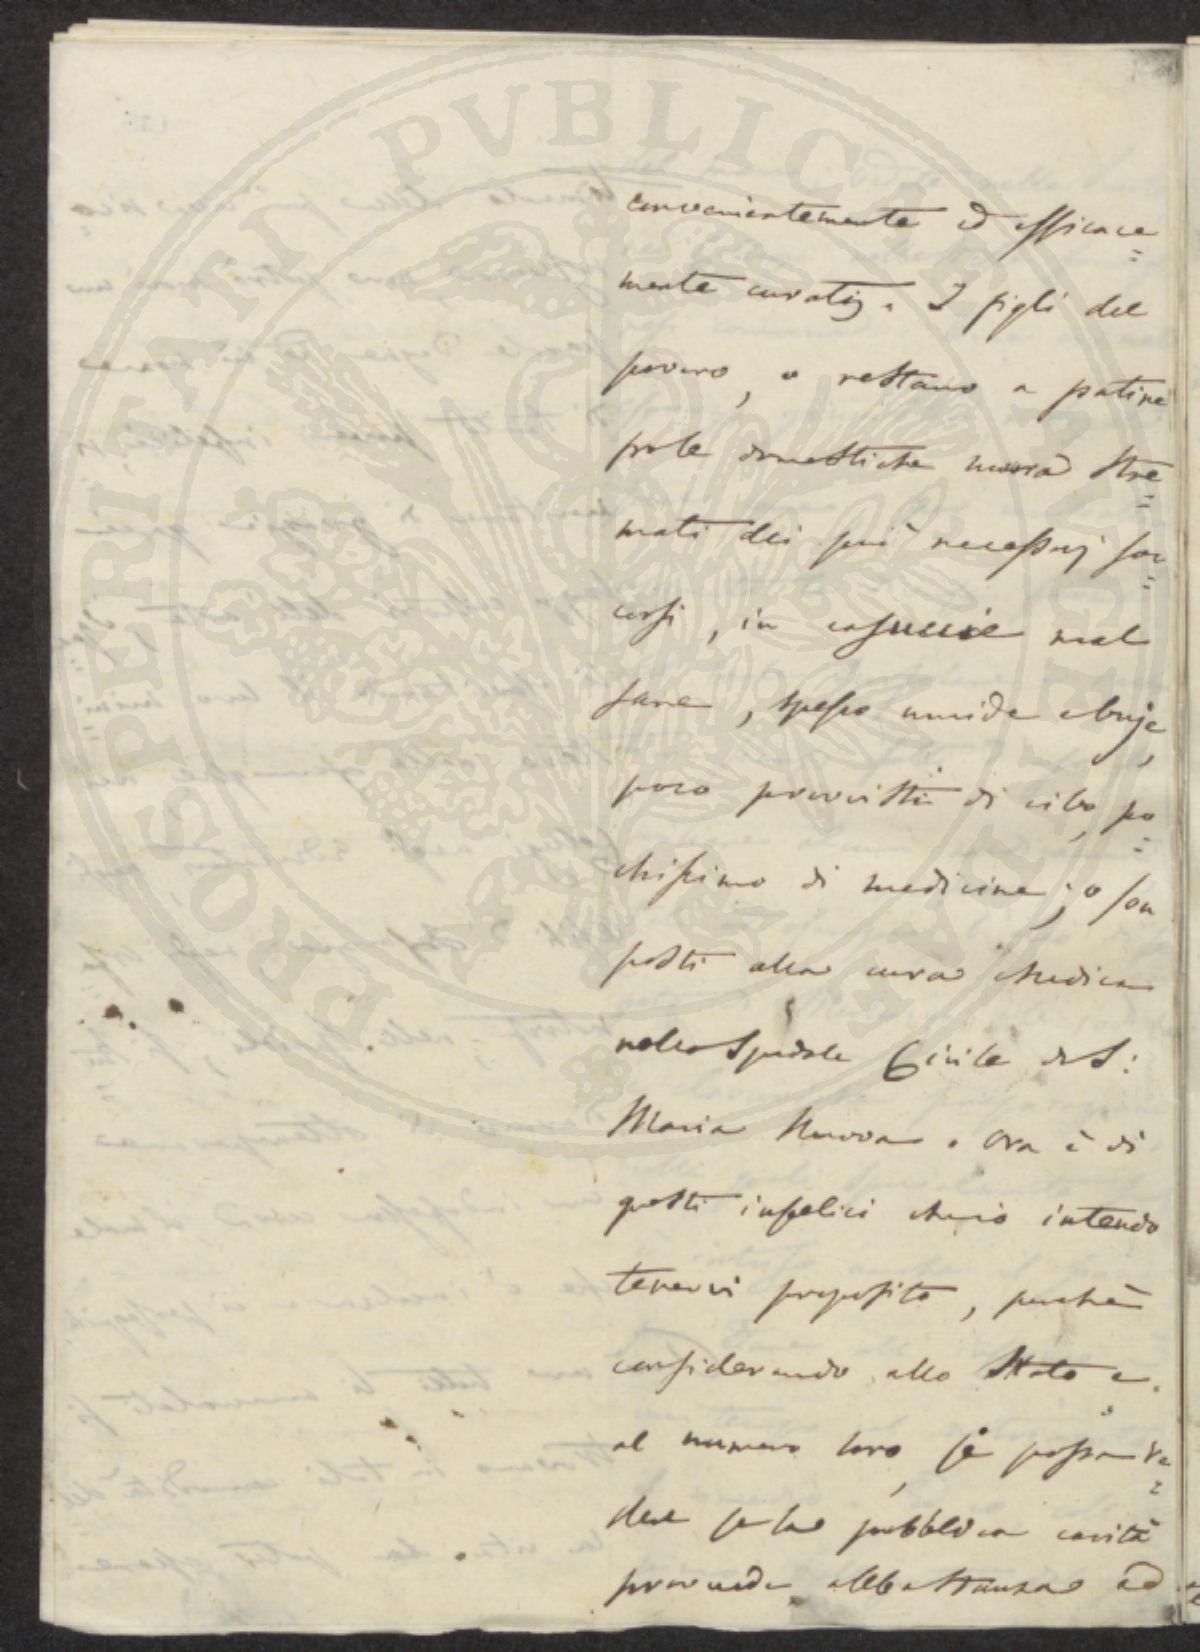 PROSPERITATI PVBLICAE
convenientemente ed efficace=
mente curati. I figli del
povero, o restano a patire
fra le domestiche mura stre=
mati dei più necessarj soc=
corsi, in casuccie mal
sane, spesso umide e buje,
poco provvisti di cibo, po=
chissimo di medicine; o son
posti alla cura medica
nello Spedale Civile di S:
Maria Nuova. Ora è di
questi infelici ch'io intendo
tenervi proposito, perchè
considerando allo stato e
al numero loro, si possa ve=
dere se la pubblica carità
provveda abbastanza ad